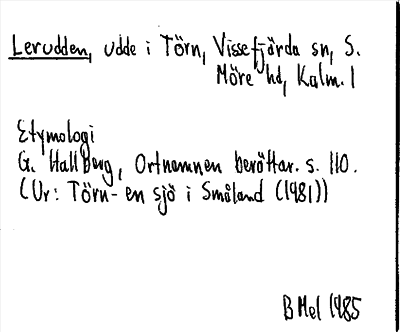 Lerudden, udde i Törn, Vissefjärda sn, S.
Möre hd, Kalm. l
Etymologi
G. Hallberg, Ortnamnen berättar. s. 110.
(Ur: Törn - en sjö i Småland (1981))
BMel 1985